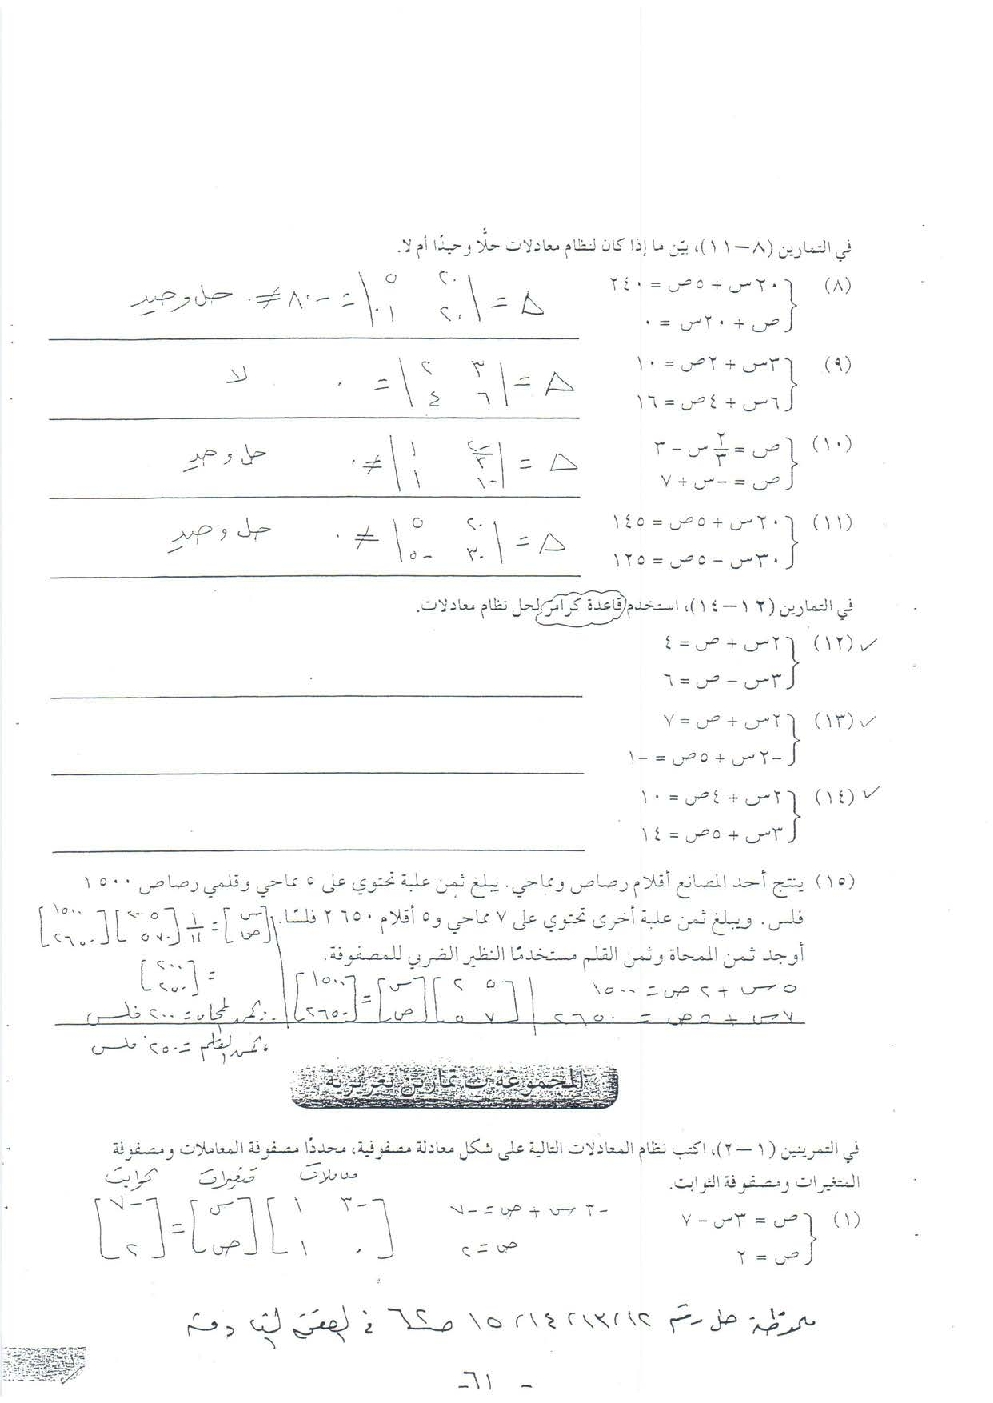 في التمارين (٨-١١)، بيّن ما إذا كان لنظام معادلات حلًّا وحيدًا أم لا.
(٨) ٢٠س + ٥ص = ٢٤٠
ص + ٢٠س = ٠
∆ = |٢٠ ٥| = -٨٠ ≠ ٠ حل وحيد
|٢٠ ١|
(٩) ٣س + ٢ص = ١٠
٦س + ٤ص = ١٦
∆ = |٣ ٢| = ٠ لا
|٦ ٤|
(١٠) ص = ٢/٣ س - ٣
ص = -س + ٧
∆ = |-٢/٣ ١| ≠ ٠ حل وحيد
|-١ ١|
(١١) ٢٠س + ٥ص = ١٤٥
٣٠س - ٥ص = ١٢٥
∆ = |٢٠ ٥| ≠ ٠ حل وحيد
|٣٠ -٥|
في التمارين (١٢-١٤)، استخدم قاعدة كرامر لحل نظام معادلات.
(١٢) ٢س + ص = ٤
٣س - ص = ٦
(١٣) ٢س + ص = ٧
-٢س + ٥ص = -١
(١٤) ٢س + ٤ص = ١٠
٣س + ٥ص = ١٤
(١٥) ينتج أحد المصانع أقلام رصاص ومماحي. يبلغ ثمن علبة تحتوي على ٥ مماحي وقلمي رصاص ١٥٠٠
فلس. ويبلغ ثمن علبة أخرى تحتوي على ٧ مماحي و٥ أقلام ٢٦٥٠ فلسًا.
أوجد ثمن الممحاة وثمن القلم مستخدمًا النظير الضربي للمصفوفة.
٥س + ٢ص = ١٥٠٠
٧س + ٥ص = ٢٦٥٠
[٥ ٢] [س] = [١٥٠٠]
[٧ ٥] [ص] [٢٦٥٠]
= [٢٠٠]
[٢٥٠]
المجموعة ب تمارين تعزيزية
في التمرينين (١-٢)، اكتب نظام المعادلات التالية على شكل معادلة مصفوفية، محددًا مصفوفة المعاملات ومصفوفة
المتغيرات ومصفوفة الثوابت.
معاملات متغيرات ثوابت
(١) ص = ٣س - ٧
ص = ٢
-٣س + ص = -٧
ص = ٢
[-٣ ١] [س] = [-٧]
[٠ ١] [ص] [٢]
ملاحظة حل رقم ١٢، ١٣، ١٤، ١٥ ص٦٢ في
- ٦١ -